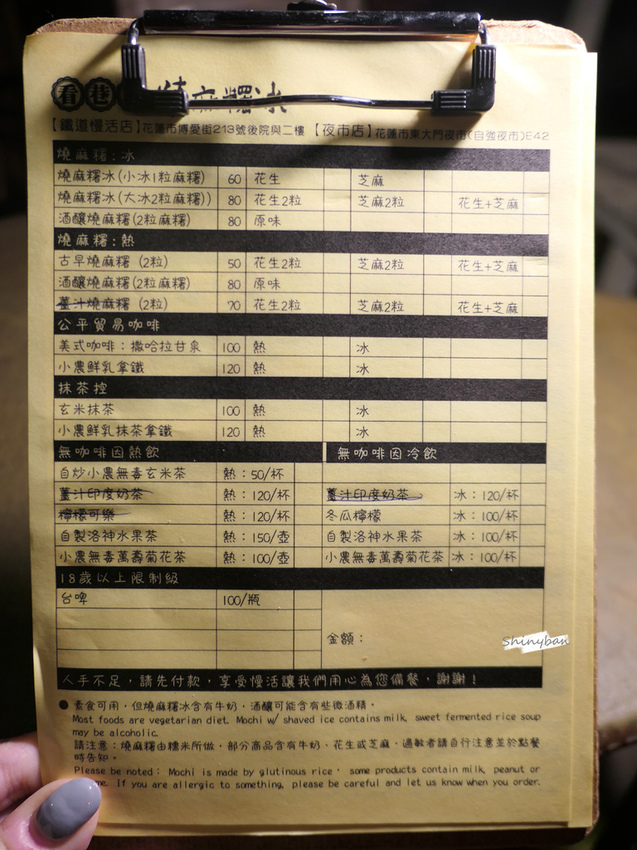 看巷 燒麻糬冰
【鐵道慢活店】花蓮市博愛街213號後院與二樓 【夜市店】花蓮市東大門夜市(自強夜市)E42
燒麻糬:冰
燒麻糬冰(小冰1粒麻糬) 60 花生 芝麻
燒麻糬冰(大冰2粒麻糬)) 80 花生2粒 芝麻2粒 花生+芝麻
酒釀燒麻糬(2粒麻糬) 80 原味
燒麻糬:熱
古早燒麻糬 (2粒) 50 花生2粒 芝麻2粒 花生+芝麻
酒釀燒麻糬(2粒麻糬) 80 原味
薑汁燒麻糬 (2粒) 70 花生2粒 芝麻2粒 花生+芝麻
公平貿易咖啡
美式咖啡:撒哈拉甘泉 100 熱 冰
小農鮮乳拿鐵 120 熱 冰
抹茶控
玄米抹茶 100 熱 冰
小農鮮乳抹茶拿鐵 120 熱 冰
無咖啡因熱飲 無咖啡因冷飲
自炒小農無毒玄米茶 熱:50/杯
薑汁印度奶茶 熱:120/杯 薑汁印度奶茶 冰:120/杯
檸檬可樂 熱:120/杯 冬瓜檸檬 冰:100/杯
自製洛神水果茶 熱:150/壺 自製洛神水果茶 冰:100/杯
小農無毒萬壽菊花茶 熱:100/壺 小農無毒萬壽菊花茶 冰:100/杯
18歲以上限制級
台啤 100/瓶
金額:
Shinyban
人手不足,請先付款,享受慢活讓我們用心為您備餐,謝謝!
● 素食可用,但燒麻糬冰含有牛奶,酒釀可能含有些微酒精。
Most foods are vegetarian diet. Mochi w/ shaved ice contains milk, sweet fermented rice soup
may be alcoholic.
請注意:燒麻糬由糯米所做,部分商品含有牛奶、花生或芝麻,過敏者請自行注意並於點餐
時告知。
Please be noted: Mochi is made by glutinous rice, some products contain milk, peanut or
If you are allergic to something, please be careful and let us know when you order.